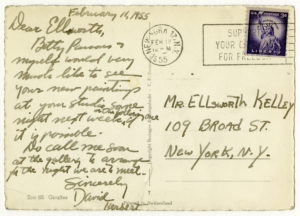 February 16, 1955
Dear Ellsworth,
Betty Parsons &
myself would very
much like to see
your new paintings
at your studio some
night next week, if
at the gallery
it is possible.
Do call me soon
at the gallery to arrange
for the night we are to meet.
Sincerely
David
Herbert
NEW YORK, N.Y.
FEB 17
1955
SUPPORT
YOUR
FOR FREEDOM
3¢
LIBERTY
MR. ELLSWORTH KELLEY
109 BROAD ST.
NEW YORK, N.Y.
Zoo
Giraffes